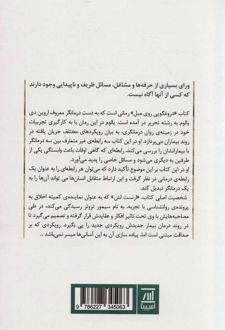 ورای بسیاری از حرفه‌ها و مشاغل، مسائل ظریف و ناپیدایی وجود دارند
که کسی از آنها آگاه نیست.
کتاب «دروغگویی روی مبل» رمانی است که به دست درمانگر معروف، اروین دی
یالوم به رشته تحریر در آمده است. یالوم در این رمان با به کارگیری تجربیات
خود در زمینه‌ی روان درمانگری، به بیان رویکردهای مختلف جریان یافته در
روند بیماران می‌پردازد. او در این کتاب سه رابطه‌ی غیر متعارف بین سه درمانگر
با بیمارانشان را بررسی می‌کند، رابطه‌ای که گاهی اوقات باعث وابستگی یکی از
طرفین به دیگری می‌شود و مسائل خاصی را پدید می‌آورد.
او در این کتاب بر این موضوع تأکید دارد که می‌توان هر رابطه‌ای را به عنوان یک
رابطه‌ی درمانی در نظر گرفت و این ارتباط متقابل انسان‌ها می تواند آن‌ها را به
یک درمانگر تبدیل کند.
شخصیت اصلی کتاب، «ارنست لش» که به عنوان نماینده‌ی کمیته اخلاق به
پرونده‌ی روانشناسی با تجربه، به نام سیمور تروتر رسیدگی می‌کند، در طی
مصاحبه‌هایش با وی تحت تاثیر افکار و عقایدش قرار گرفته و تصمیم می‌گیرد تا
در روند درمان بیمار جدیدش رویکردی جدید را پی بگیرد، رویکردی که بر
صداقت مبتنی است اما، پیاده سازی آن به این آسانی‌ها میسر نمی‌باشد...
9 786227 345063